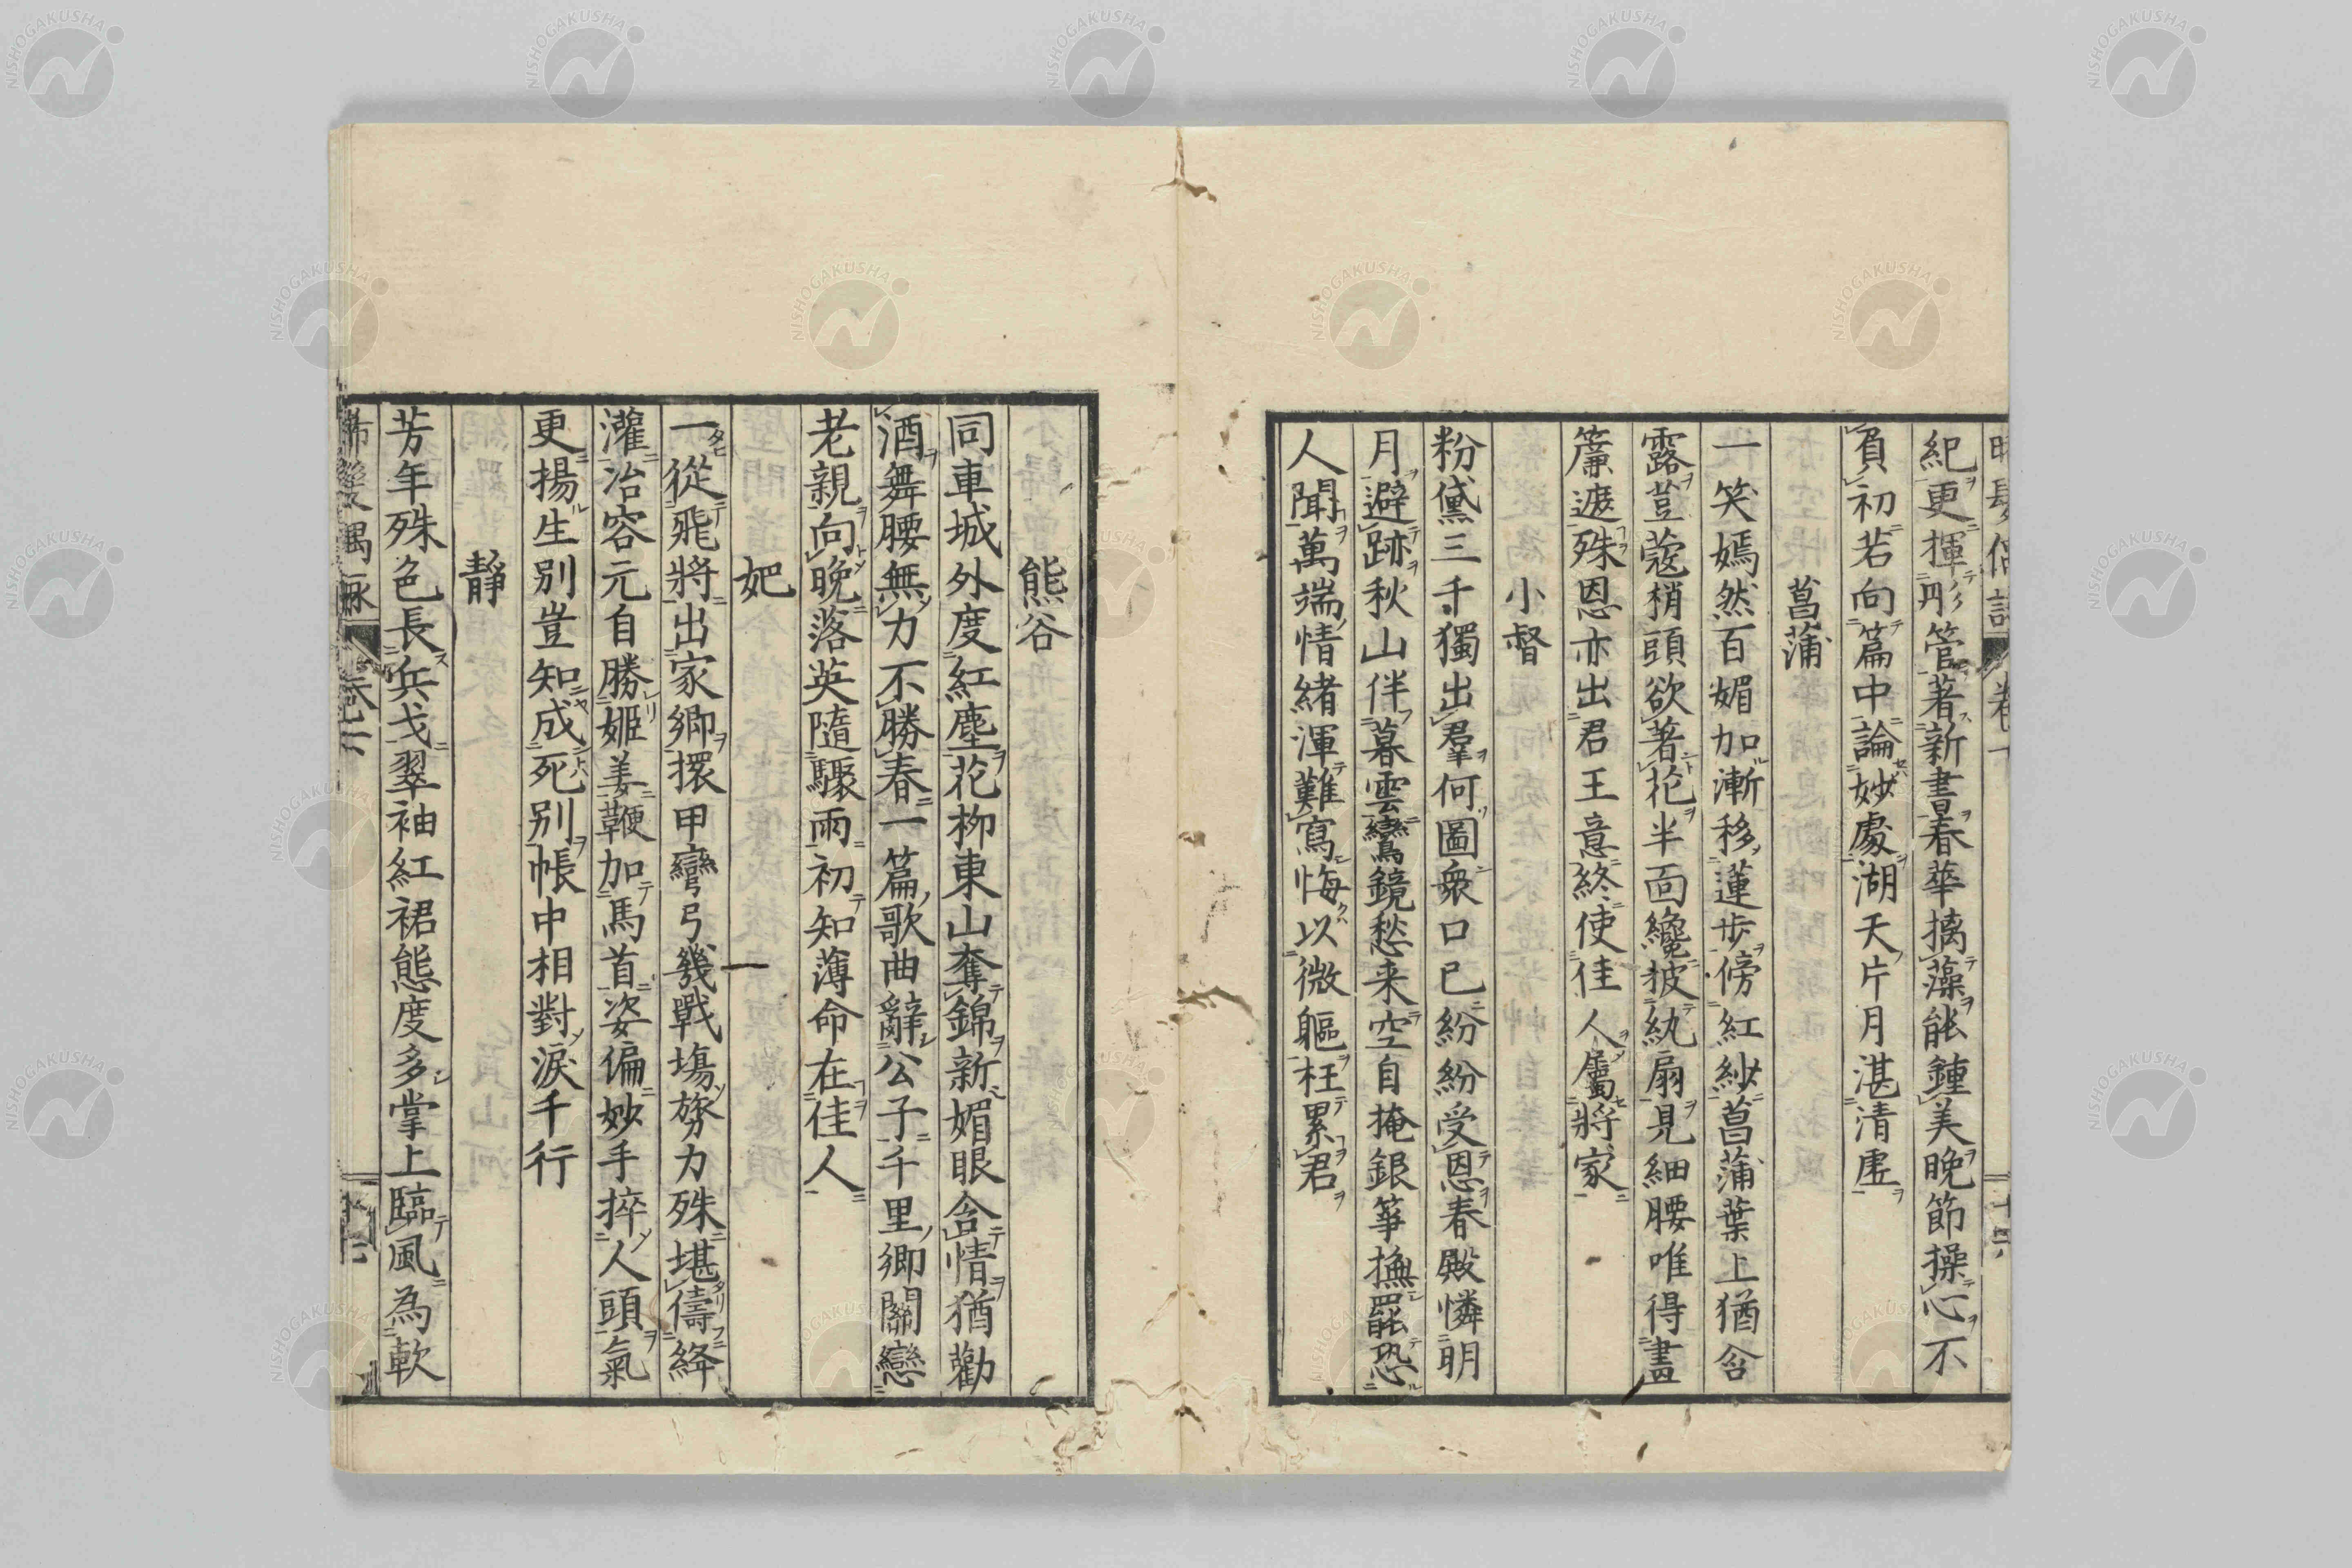 紀更揮彤管著新書春華摛藻能鍾美晚節操心不
負初若向篇中論妙處湖天片月湛清虛
菖蒲
一笑嫣然百媚加漸移蓮步傍紅紗菖蒲葉上猶含
露豈蔻梢頭欲著花半面纔披紈扇見細腰唯得畫
簾遮殊恩亦出君王意終使佳人屬將家
小督
粉黛三千獨出羣何圖衆口已紛紛受恩春殿憐明
月避跡秋山伴暮雲鸞鏡愁来空自掩銀箏撫罷恐
人聞萬端情緒渾難寫悔以微軀枉累君
熊谷
同車城外度紅塵花柳東山奪錦新媚眼含情猶勸
酒舞腰無力不勝春一篇歌曲辭公子千里鄉關戀
老親向晚落英隨驟雨初知薄命在佳人
妑
一從飛將出家鄉擐甲彎弓幾戰塲旅力殊堪儔絳
灌冶容元自勝姬姜鞭加馬首姿偏妙手捽人頭氣
更揚生別豈知成死別帳中相對淚千行
靜
芳年殊色長兵戈翠袖紅裙態度多掌上臨風為軟